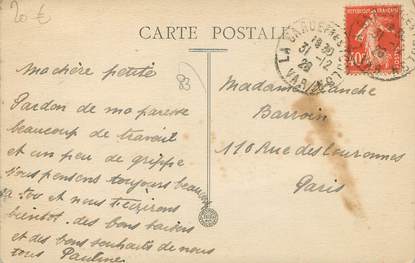 20 €
CARTE POSTALE
LA GARDE FREINET
18 30
31 -12
28
VAR
RÉPUBLIQUE FRANÇAISE
40c
83
Ma chère petite
Pardon de ma paresse
beaucoup de travail
et un peu de grippe
vous pensons toujours beaucoup
et nous t'écrirons
bientôt. des bons baisers
et des bons souhaits de nous
tous Pauline
Madame Blanche
Barroin
110 Rue des Couronnes
Paris